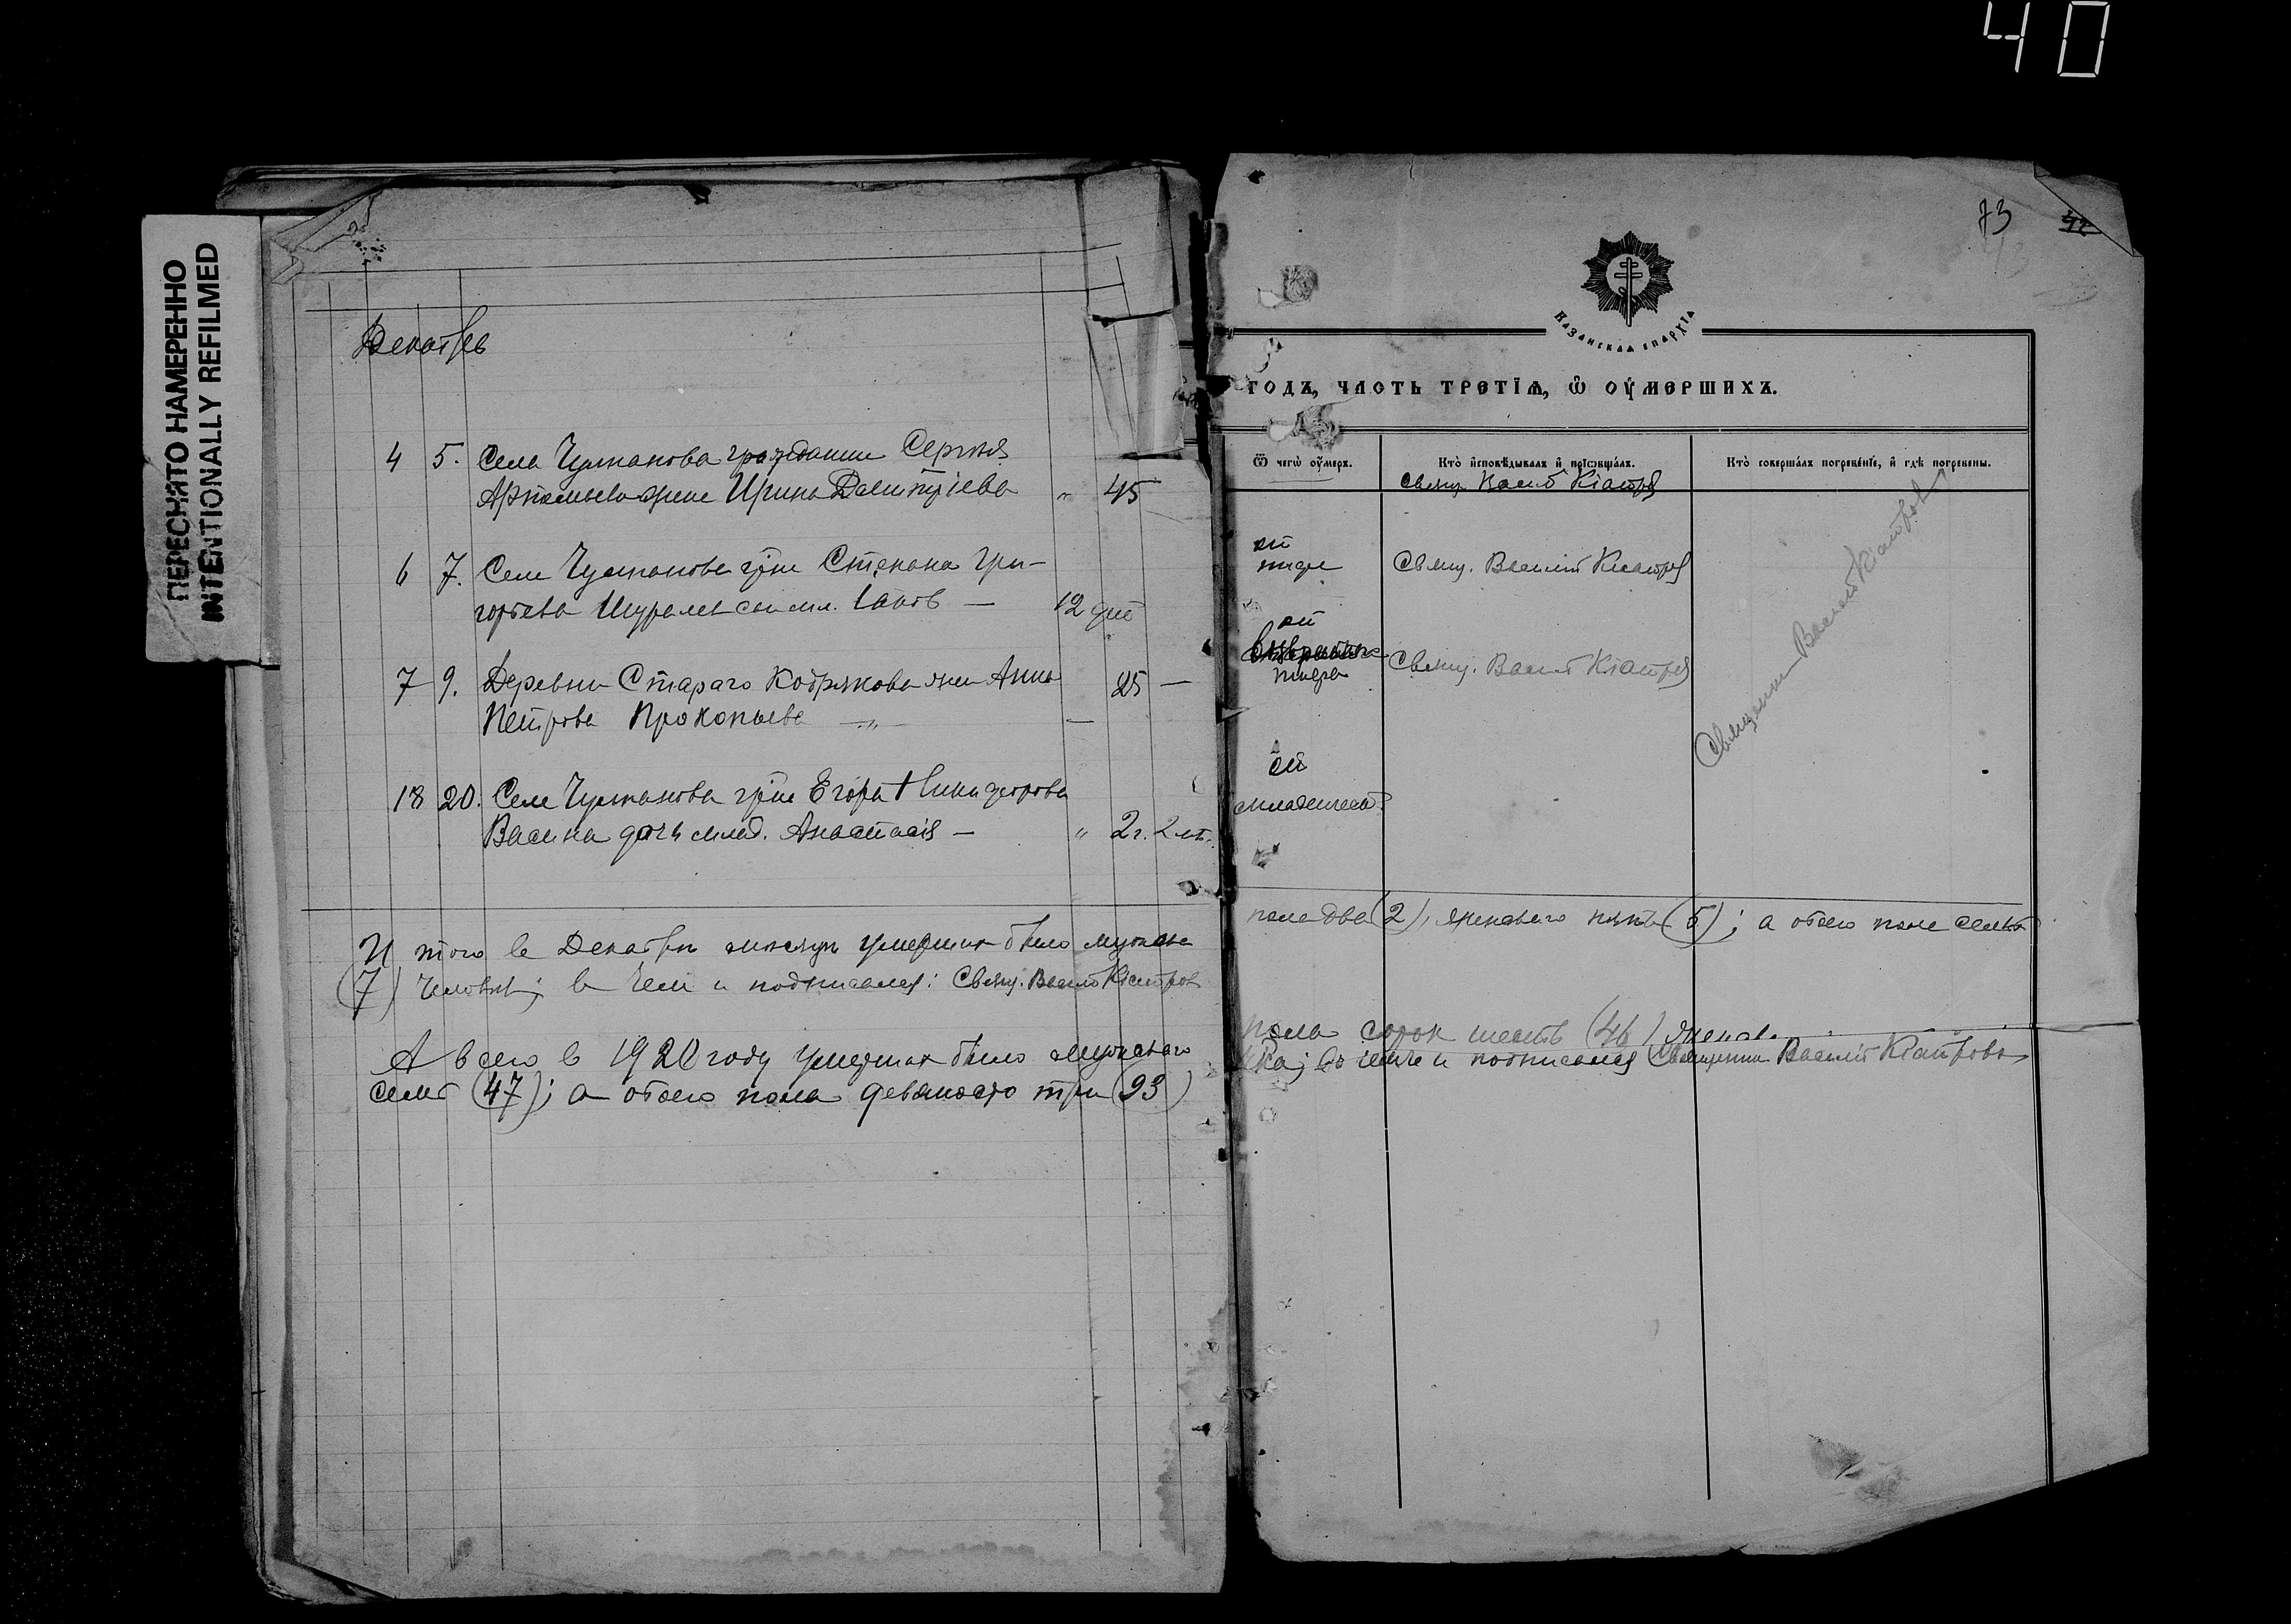 40
ПЕРЕСНЯТО НАМЕРЕННО
INTENTIONALLY REFILMED
Декабрь
4 5. Села Чулпанова гражданин Сергѣя
жена Ирина Димитріева " 45
6 7. Села Чулпанова гр‑на Степана Гри-
горьева сын мл. Іаков — 12 дней
7 9. Деревни Стараго Кодрякова Анна 25 —
Петрова Прокопьева — " — —
18 20. Села Чулпанова гр‑на Егора Никифорова
Васина дочь млад. Анастасія — " 2 г. 2 м.
И того в Декабрѣ мѣсяцѣ умерших было мужска
(7) человѣк; в чем и подписался: Свящ. Василій Кіатров
А всего в 1920 году умерших было мужскаго
семь (47); а обоего пола девяносто три (93)
73
42
КАЗАНСКАЯ ЕПАРХІЯ
ГОДЪ, ЧАСТЬ ТРЕТІѦ, Ѿ ОУМЕРШИХЪ.
Ѿ чегѡ оумеръ.
Кто̀ и҆сповѣ́дывалъ и҆ прїѡбща́лъ.
Кто̀ соверша́лъ погребе́нїе, и҆ гдѣ̀ погребены.
Свящ. Васил Кіатров
от
тифа
Свящ. Василій Кіатров
от
тифа
Свящ. Васил Кіатров
от
младенческ.
Священник Василій Кіатров
пола два (2), женскаго пять (5); а обоего пола семь
пола сорок шесть (46), женск.
ка; во чем и подписался Священник Василій Кіатров